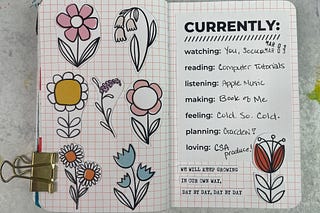 CURRENTLY:
watching: You, Soccer
reading: Computer Tutorials
listening: Apple Music
making: Book of Me
feeling: Cold. So. Cold.
planning: Garden?
loving: CSA produce!
WE WILL KEEP GROWING
IN OUR OWN WAY,
DAY BY DAY, DAY BY DAY